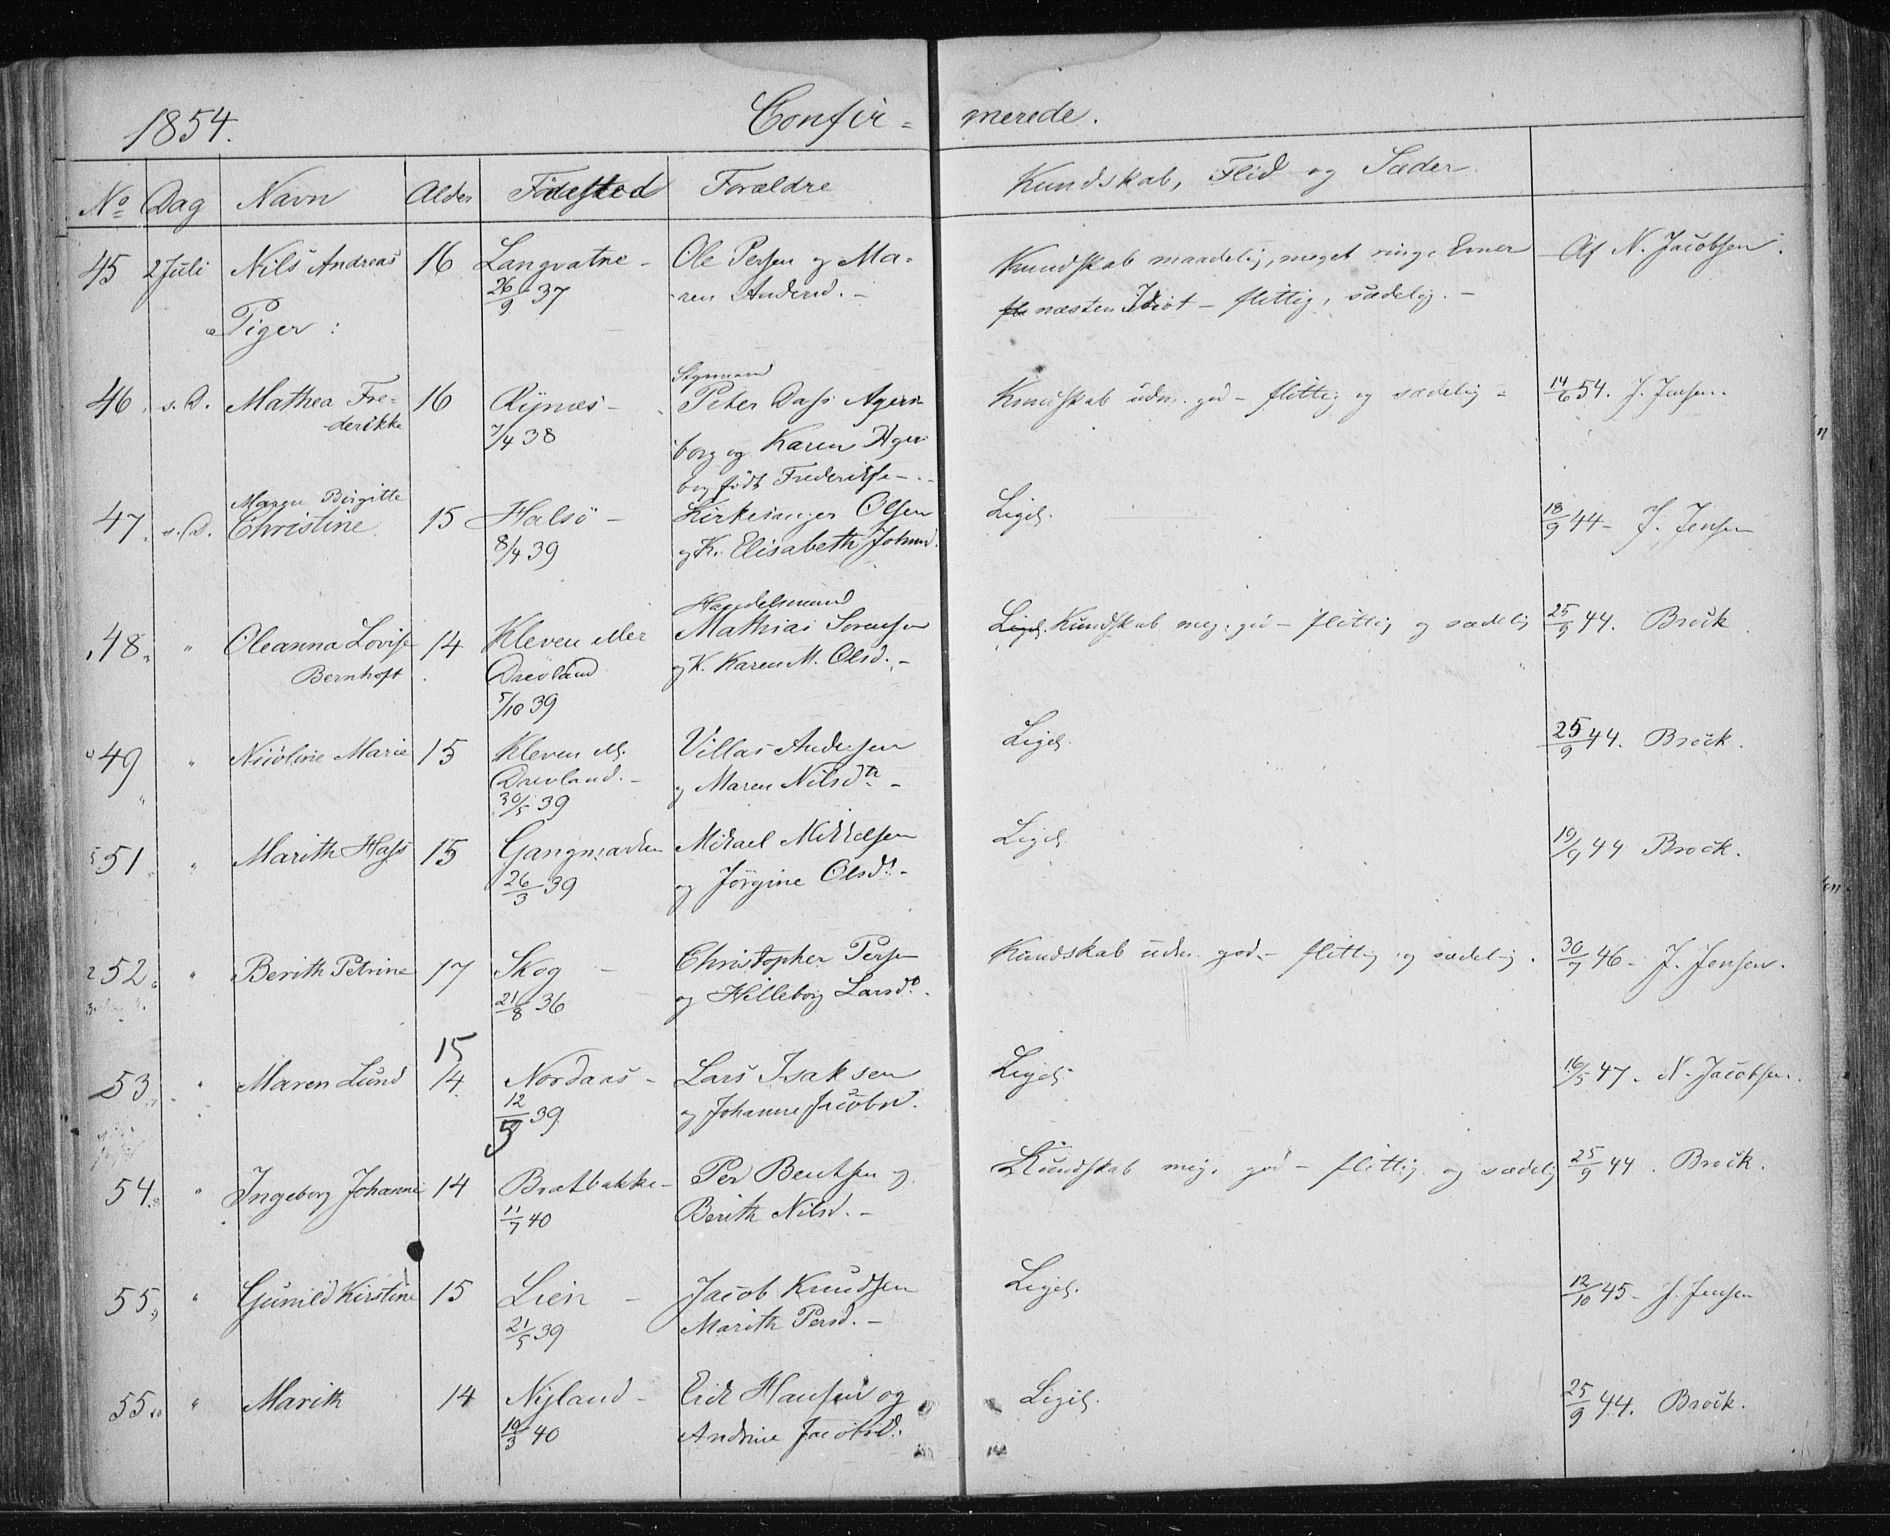 1854. Confir= merede.
No Dag Navn Alder Fødested Forældre Kundskab, Flid og Sæder
45 2 Juli Nils Andreas 16 Langvatne - Ole Persen og Ma- Kundskab maadelig, meget ringe Evner Af N. Jacobsen.
26/9 37 ren Andersd. - næsten Idiot - flittig, sædelig. -
Piger:
Styrmand
46. s. D. Mathea Fre- 16 Rynæs - Peter Dass Agers- Kundskab udm. god - flittig og sædelig - 14/6 54. J. Jensen.
-derikke 7/4 38 borg og Karen Agers-
borg født Frederikse - .
Maren Birgitte
47. s. D. Christine 15 Halsø - Kirkesanger Olsen Ligel. 18/9 44 - J. Jensen
8/4 39 og K. Elisabeth Johnsd.
Handelsmand
48. " Oleanna Lovise 14 Kleven eller Mathias Sørensen Ligel. Kundskab meg. god - flittig og sædelig 25/9 44. Brock.
Bernhoft Drevland og K. Karen M. Olsd. -
5/10 39
49 " Nicoline Marie 15 Kleven ell. Villas Andersen Ligel. 25/9 44. Brock.
Drevland. - og Maren Nilsdtr -
30/5 39
51 " Marith Hass 15 Mikael Mikkelsen Ligel. 19/9 44 Brock.
26/3 39 og Jørgine Olsdt. -
52 " Berith Petrine 17 Skog - Christopher Persen Kundskab udm. god - flittig og sædelig. 30/7 46 - J. Jensen.
21/8 36 og Hilleborg Larsd.
15
53 " Maren Lund 14 Nordaas - Lars Isaksen Ligel. 16/5 47. N. Jacobsen.
12/5 39 og Johanne Jacobsd.
54. " Ingeborg Johanne 14 Bratbakke - Per Bentsen og Kundskab meg. god - flittig og sædelig 25/9 44. Brock.
11/7 40 Berith Nilsd. -
55. " Gunild Kirstine 15 Lien - Jacob Knudsen Ligel. 12/10 45 - J. Jensen
21/5 39 Marith Persd. -
55 " Marith 14 Nyland - Erik Hansen og Ligel. 25/9 44. Brock.
19/3 40 Andrine Jacobsd.